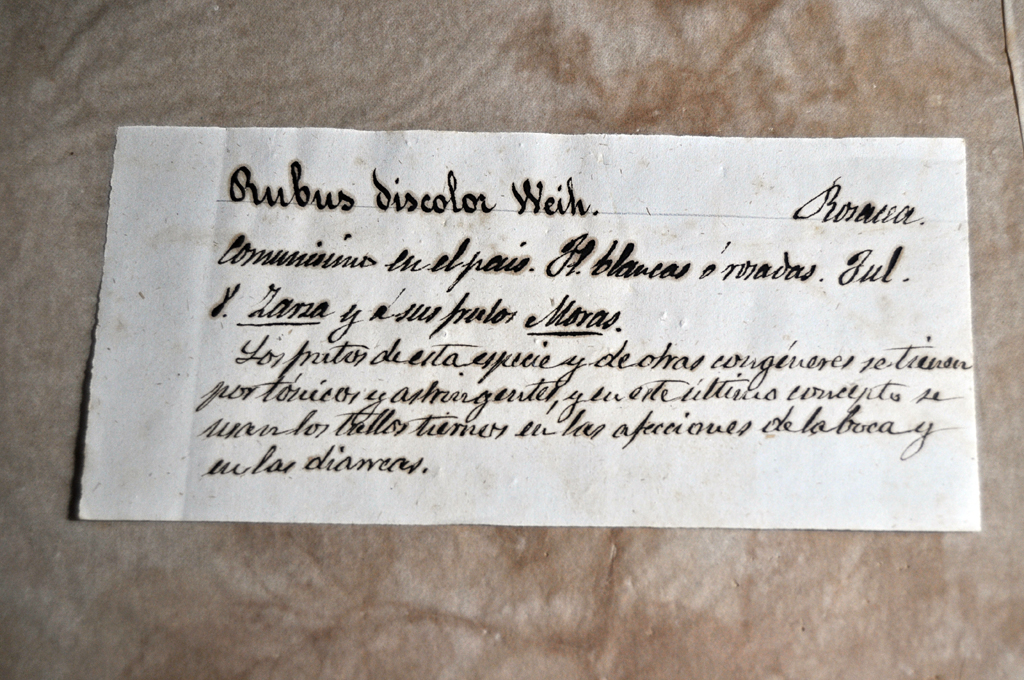 Rubus discolor Weih. Rosacea.
Comunisimo en el pais. Fl. blancas ó rosadas. Jul.
V. Zarza y á sus frutos Moras.
Los frutos de esta especie y de otras congéneres se tienen
por tónicos y astringentes, y en este último concepto se
usan los tallos tiernos en las afecciones de la boca y
en las diarreas.